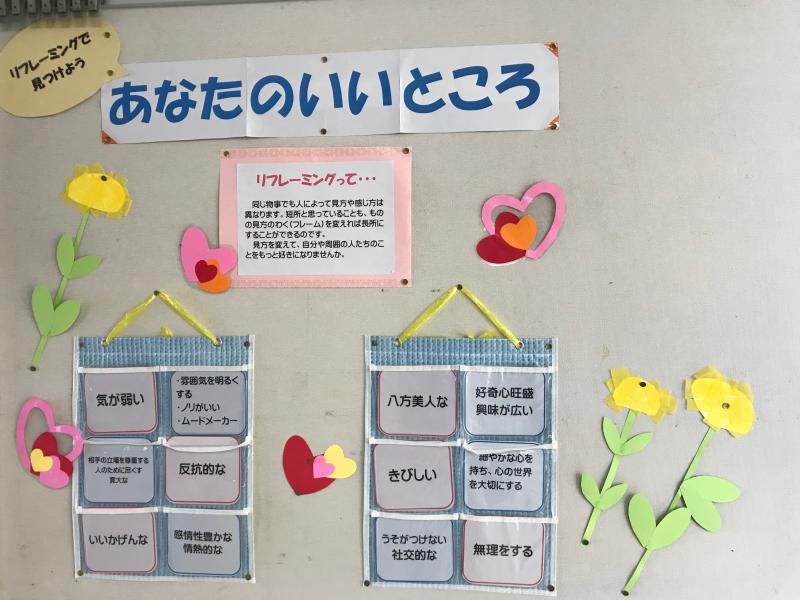 リフレーミングで
見つけよう
あなたのいいところ
リフレーミングって・・・
同じ物事でも人によって見方や感じ方は
異なります。短所と思っていることも、もの
の見方のわく(フレーム)を変えれば長所に
することができるのです。
見方を変えて、自分や周囲の人たちのこ
とをもっと好きになりませんか。
気が弱い
・雰囲気を明るく
する
・ノリがいい
・ムードメーカー
相手の立場を尊重する
人のために尽くす
寛大な
反抗的な
いいかげんな
感情性豊かな
情熱的な
八方美人な
好奇心旺盛
興味が広い
きびしい
細やかな心を
持ち、心の世界
を大切にする
うそがつけない
社交的な
無理をする